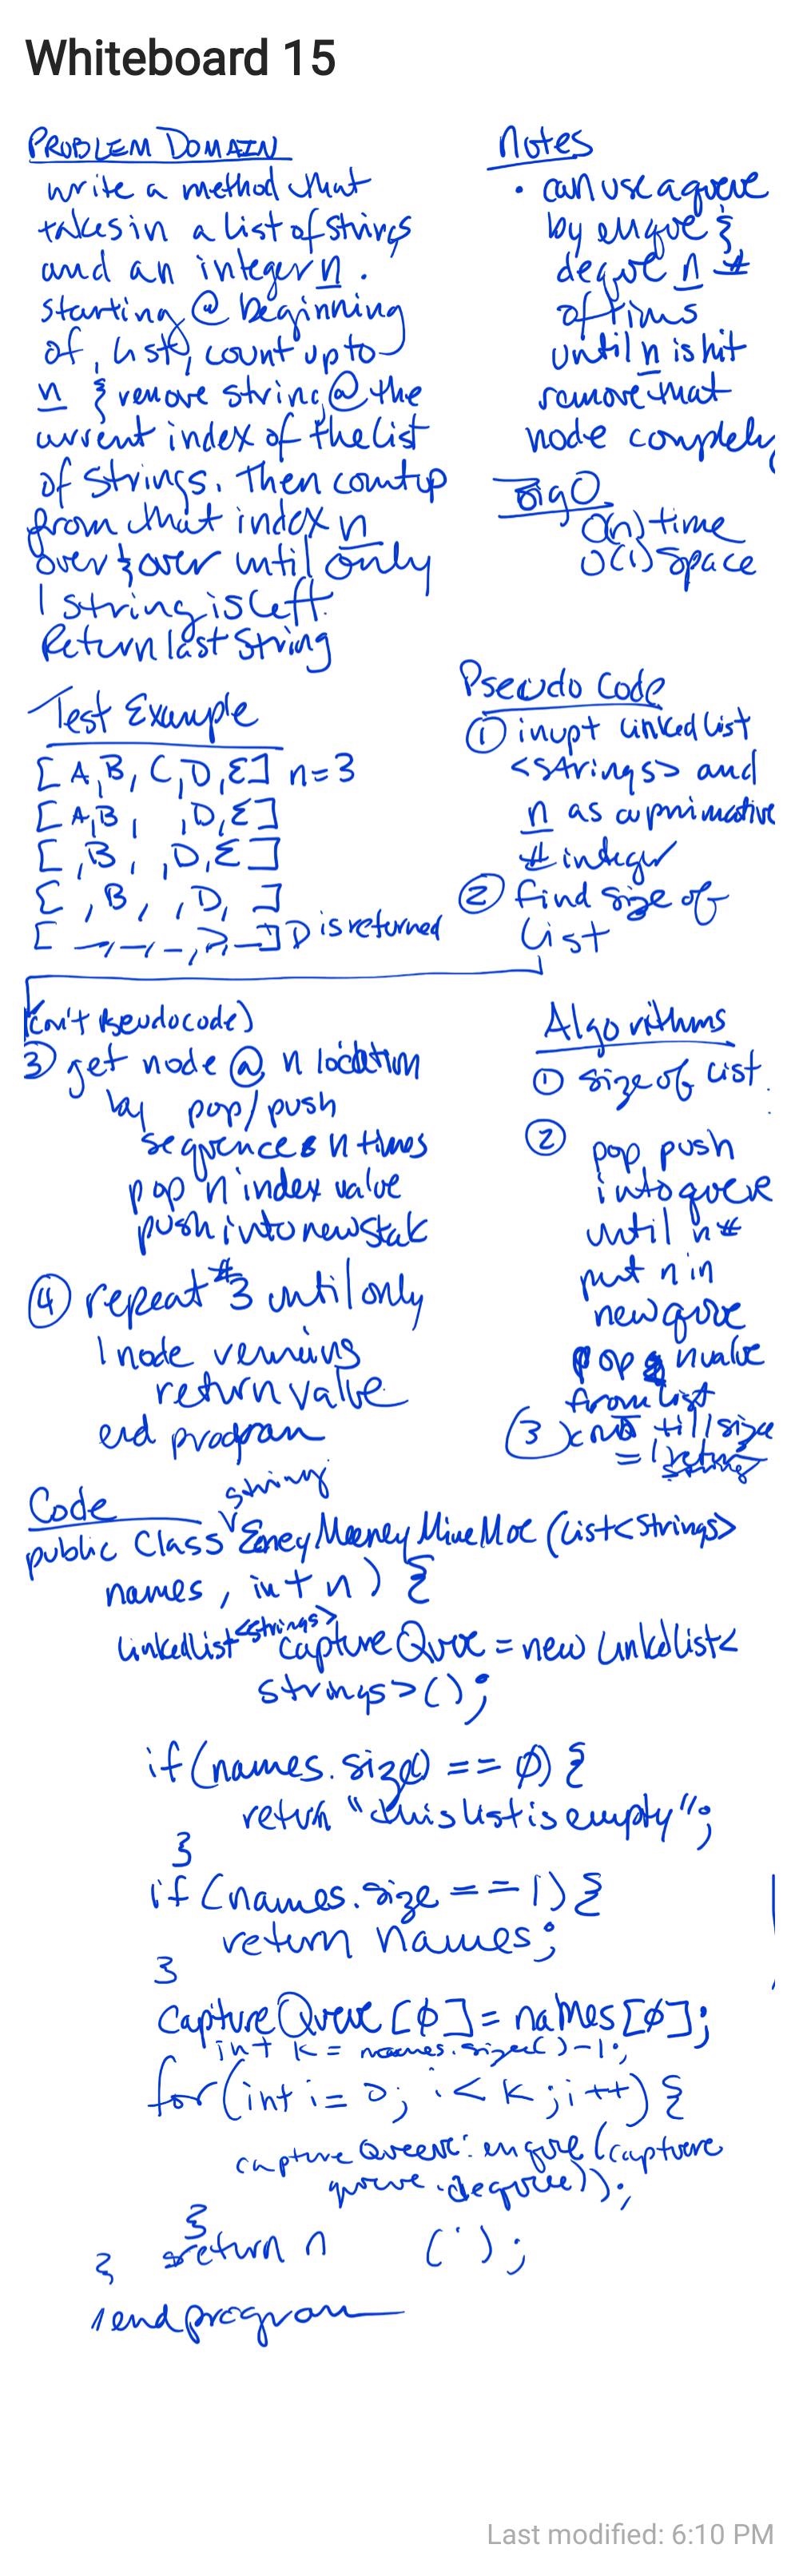 Whiteboard 15
PROBLEM DOMAIN
write a method that
takes in a list of strings
and an integer n.
starting @ beginning
of list, count up to
n & remove string @ the
current index of the list
of strings. Then count up
from that index n
over & over until only
1 string is left.
Return last string
Notes
• can use a queue
by enque &
deque n #
of tims
until n is hit
remove that
node complely
Big O
O(n) time
O(1) space
Test Example
[A,B,C,D,E] n=3
[A,B, ,D,E]
[ ,B, ,D,E]
[ ,B, ,D, ]
[ _,_,_,D,_] D is returned
Pseudo Code
① inupt linked list
<strings> and
n as a primative
# integer
② find size of
list
(con't pseudocode)
③ get node @ n location
by pop/push
sequences n times
pop 'n' index value
push into new stak
④ repeat #3 until only
1 node remains
return value
end program
Algorithms
① size of list.
② pop push
into queue
until n#
put n in
new queue
pop n value
from list
③ till size
= 1
Code
string
public Class EeneyMeeneyMineMoe (List<Strings>
names, int n) {
<strings>
linkedlist captureQueue = new Linkedlist<
strings>();
if (names.size() == 0) {
return "this list is empty";
}
if (names.size == 1) {
return names;
}
captureQueue [0] = names[0];
int k = names.size()-1;
for (int i = 0; i < k; i++) {
captureQueue.enqueue(capture
queue.dequeue());
}
return n ( );
}
end program
Last modified: 6:10 PM